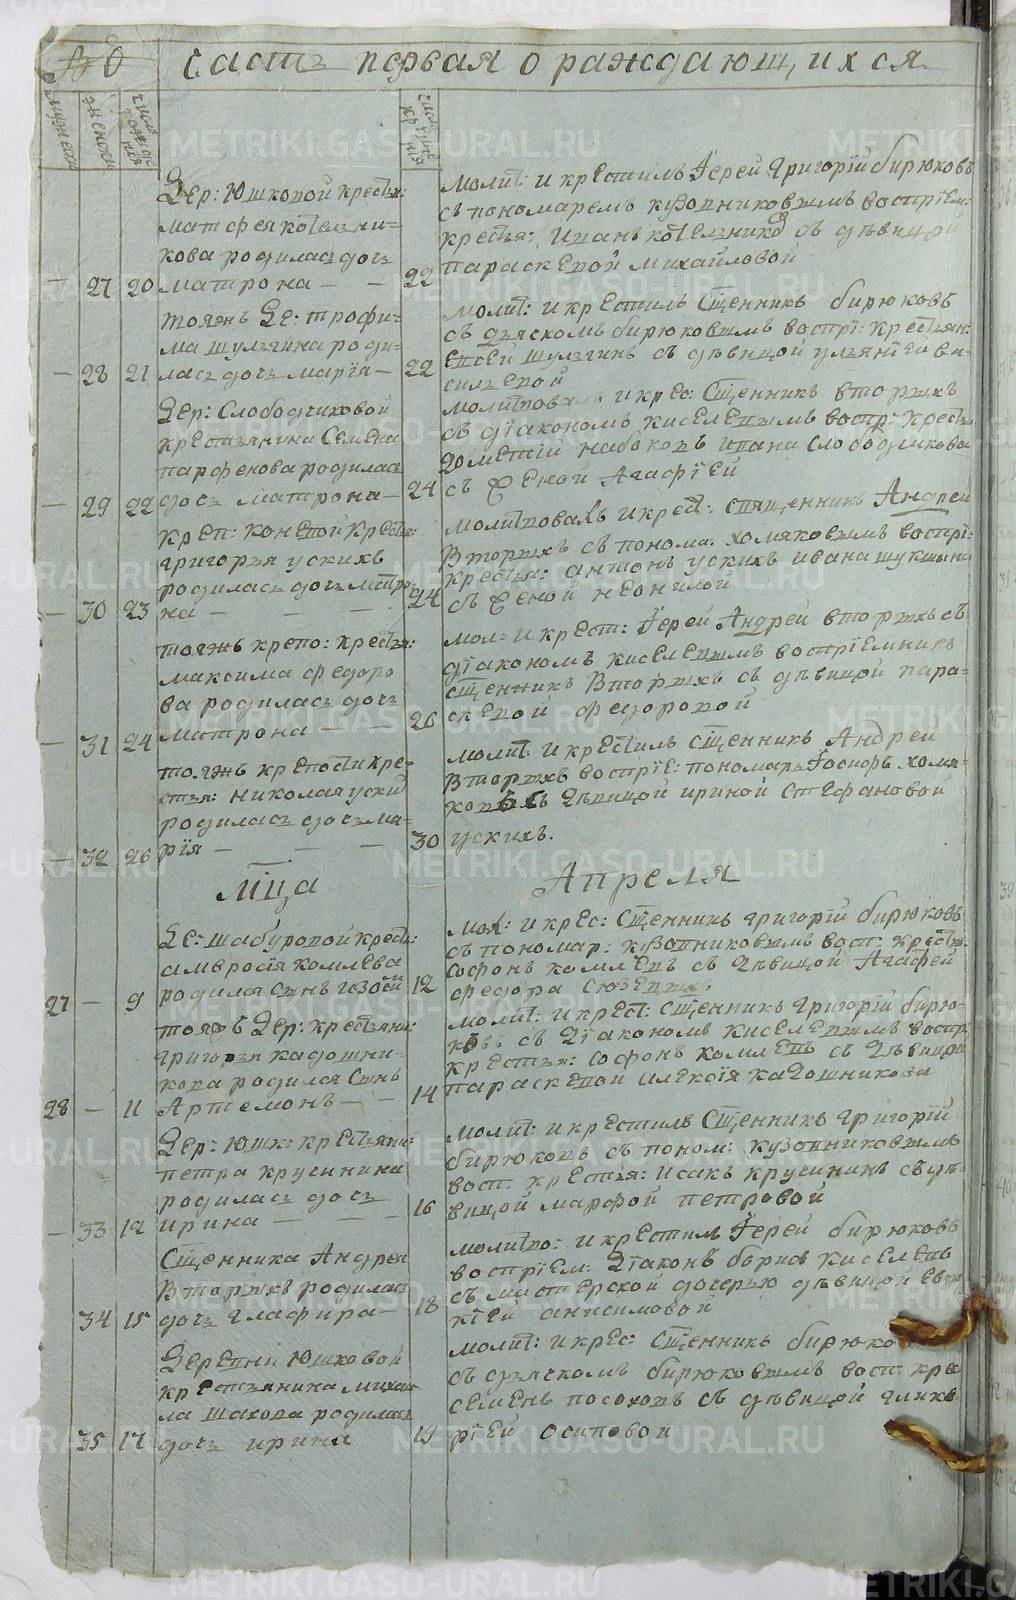 часть первая о раждающихся
Дер: Юшковой крестья:
матфея котелни=
кова родилась дочь
27 20 матрона
молит: и крестилъ Іерей григорій бирюковъ
съ пономаремъ кузовниковымъ воспріем:
крестья: иванъ котелниковъ съ дѣвицой
22 параскевой михайловой
тояжъ де: трофи=
ма шулягина роди=
28 21 лась дочь марія
молит: и крестилъ Сщенникъ бирюковъ
съ дьячкомъ бирюковымъ воспрі: крестьян:
22 евсей шулягинъ съ дѣвицой ульяніей ва=
сильевой
дер: Слободчиковой
крестьянина Семена
парфенова родилась
29 22 дочь матрона
молитвовалъ и крес: Сщенникъ вторыхъ
съ діакономъ киселевымъ воспр: крестья:
дометій набоковъ ивана слободчикова
24 съ женой Агафіей
креп: коневой кресть:
григорья ускихъ
родилась дочь матро
30 23 на
молитвовалъ и крест: священникъ Андрей
Вторыхъ съ понома: хомяковымъ воспрі:
крестья: антонъ ускихъ ивана шукшина
24 съ женой неонилой
тояжъ крепо: крестья:
максима федоро
ва родилась дочь
31 24 матрона
мол: и крест: Іерей Андрей вторыхъ съ
діакономъ киселевымъ воспріемникъ
сщенникъ Вторыхъ съ дѣвицой пара=
26 скевой федоровой
тояжъ крепости кре=
стья: николая ускихъ
родилась дочь ма=
32 26 рія
молит: и крестилъ сщенникъ Андрей
Вторыхъ воспріе: пономарь Іосифъ хомя=
ковъ съ дѣвицой ириной Стефановой
30 ускихъ.
Мца Апреля
де: шабуровой кресть:
амвросія комлева
27 9 родился Сынъ
мол: и крес: Сщенникъ григорій бирюковъ
съ пономар: кузовниковымъ восп: крестья:
12 Софонъ комлевъ съ дѣвицой Агафей
федора
тояжъ дер: крестьяни:
григорья кадошни=
кова родился Сынъ
28 11 Артемонъ
молит: и крест: Сщенникъ григорій бирю=
ковъ съ діакономъ киселевымъ воспр:
крестья: софонъ комлевъ съ дѣвицой
14 параскевой алексія кадошникова
дер: юшк: крестьяни:
петра кручинина
родилась дочь
33 12 ирина
молит: и крестилъ Сщенникъ григорій
бирюковъ съ поном: кузовниковымъ
восп: крестья: исакъ кручининъ съ дѣ=
16 вицой марфой петровой
Сщенника Андрея
Вторыхъ родилась
34 15 дочь глафира
молитво: и крестилъ Іерей бирюковъ
воспріем: діаконъ борисъ киселевъ
съ дочерью дѣвицой
18 анисимовой
деревни Юшковой
крестьянина михаи
ла шахова родилась
35 17 дочь ирина
молит: и крес: Сщенникъ бирюко
съ дьячкомъ бирюковымъ восп: кре
семенъ посоховъ съ дѣвицой глике
19 ріей осиповой